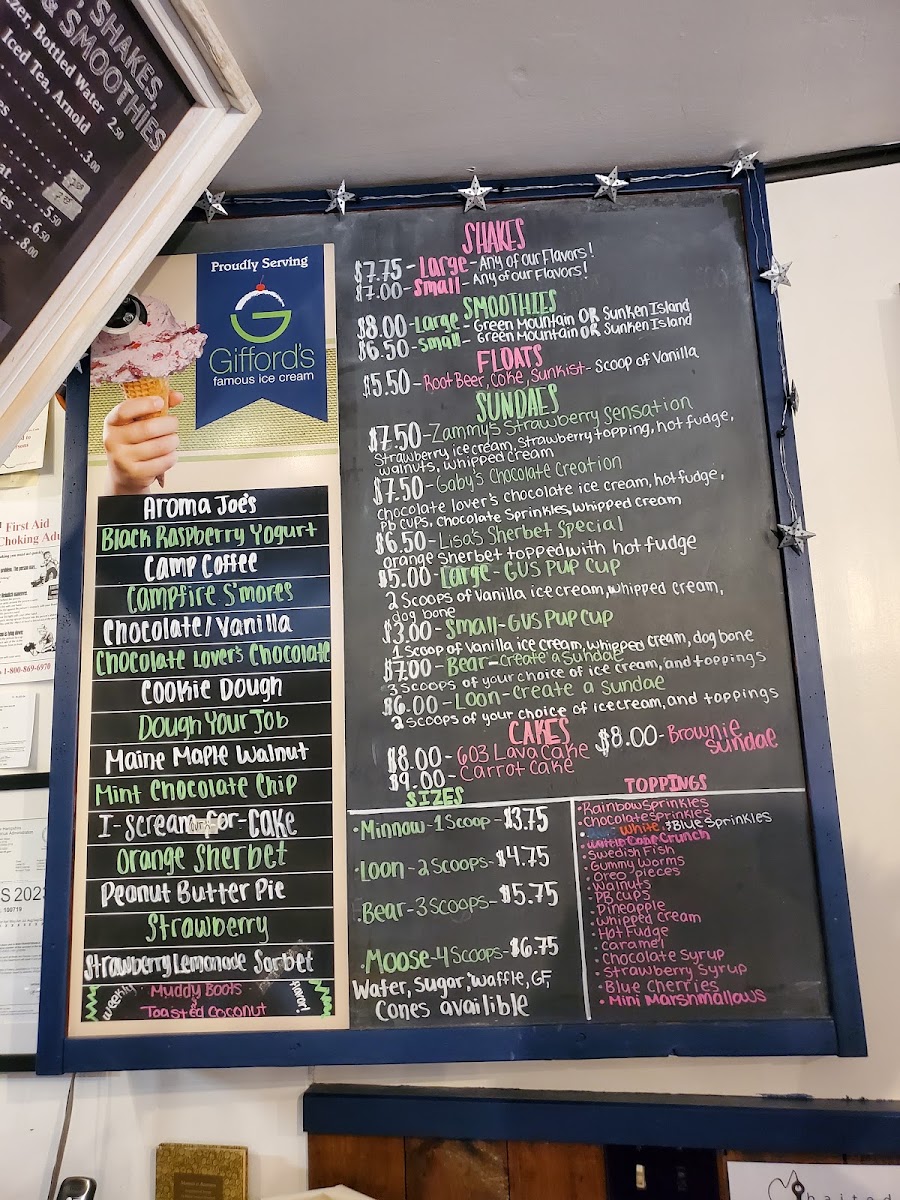 SHAKES,
& SMOOTHIES
Bottled Water
2.50
Iced Tea, Arnold
3.00
5.50
6.50
8.00
Proudly Serving
Gifford's
famous ice cream
Aroma Joe's
Black Raspberry Yogurt
Camp Coffee
Campfire S'mores
Chocolate/Vanilla
Chocolate Lover's Chocolate
Cookie Dough
Dough Your Job
Maine Maple Walnut
Mint Chocolate Chip
I-scream-for-CAKE
Orange Sherbet
Peanut Butter Pie
Strawberry
Strawberry Lemonade Sorbet
weekly
Muddy Boots
Toasted Coconut
flavor!
SHAKES
$7.75 - Large - Any of our Flavors!
$7.00 - Small - Any of our Flavors!
SMOOTHIES
$8.00 - Large - Green Mountain OR Sunken Island
$6.50 - Small - Green Mountain OR Sunken Island
FLOATS
$5.50 - Root Beer, Coke, Sunkist - Scoop of Vanilla
SUNDAES
$7.50 - Zammy's Strawberry Sensation
Strawberry ice cream, strawberry topping, hot fudge,
walnuts, whipped cream
$7.50 - Gaby's Chocolate Creation
chocolate lover's chocolate ice cream, hot fudge,
PB cups, chocolate Sprinkles, whipped cream
$6.50 - Lisa's Sherbet Special
orange sherbet topped with hot fudge
$5.00 - Large - GUS PUP CUP
2 scoops of vanilla ice cream, whipped cream,
dog bone
$3.00 - Small - GUS PUP CUP
1 scoop of Vanilla ice cream, whipped cream, dog bone
$7.00 - Bear - create a sundae
3 scoops of your choice of ice cream, and toppings
$6.00 - Loon - create a sundae
2 scoops of your choice of icecream, and toppings
CAKES
$8.00 - 603 Lava Cake
$9.00 - Carrot Cake
$8.00 - Brownie
Sundae
SIZES
•Minnow - 1 Scoop - $3.75
•Loon - 2 Scoops - $4.75
•Bear - 3 Scoops - $5.75
•Moose - 4 Scoops - $6.75
Wafer, Sugar, Waffle, GF,
Cones availible
TOPPINGS
•Rainbow Sprinkles
•Chocolate Sprinkles
White, & Blue Sprinkles
Crunch
•Swedish Fish
•Gummy Worms
•Oreo pieces
•Walnuts
•PB cups
•Pineapple
•whipped cream
•Hot Fudge
•caramel
•Chocolate Syrup
•Strawberry Syrup
•Blue Cherries
•Mini Marshmallows
First Aid
1-800-869-6970
baited